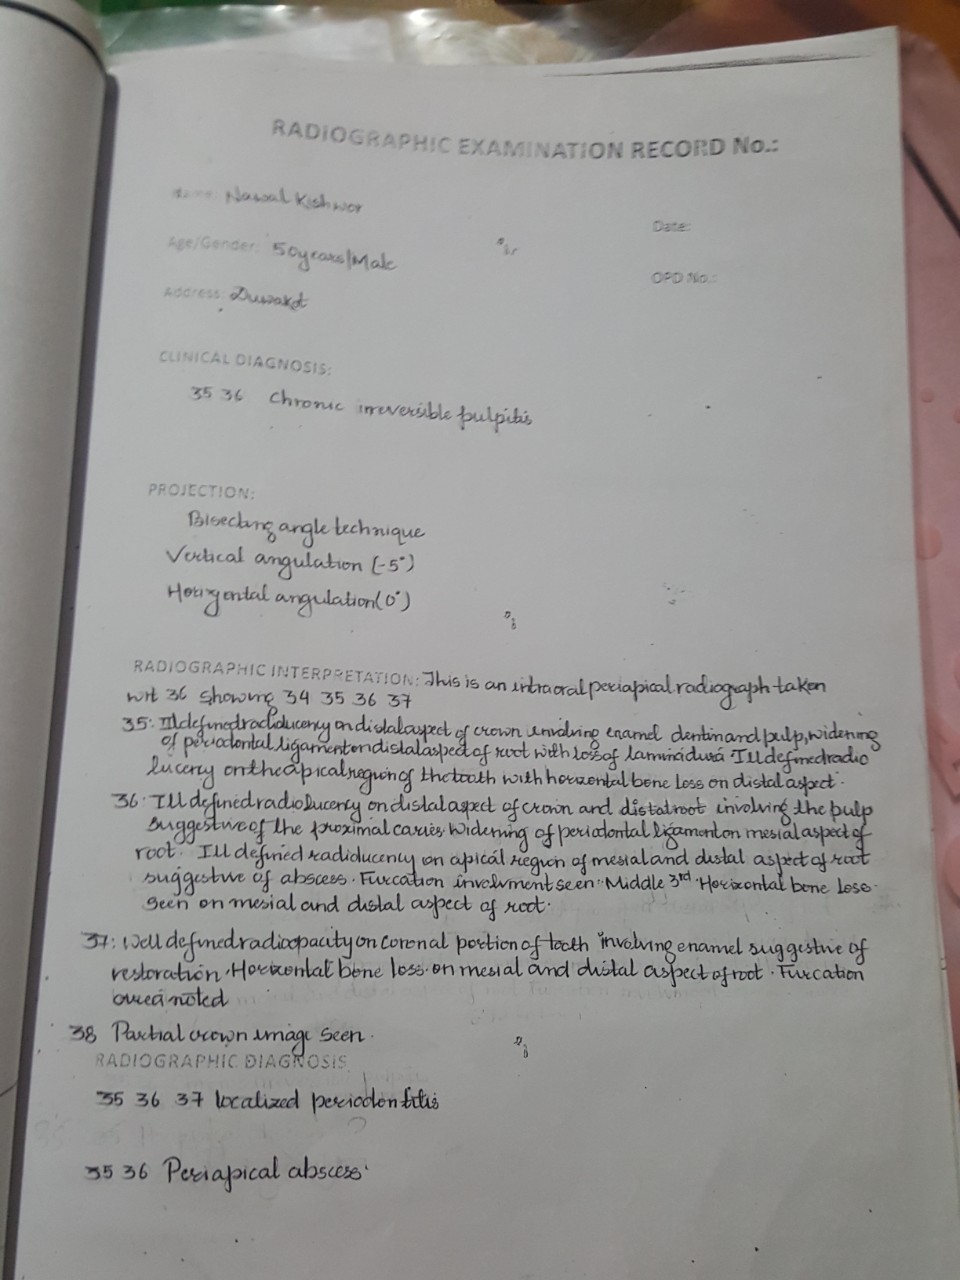 RADIOGRAPHIC EXAMINATION RECORD No.:
Name: Nawal Kishwor
Date:
Age/Gender: 50years/Male
OPD No.:
Address: Duwakot
CLINICAL DIAGNOSIS:
35 36 Chronic irreversible pulpitis
PROJECTION:
Bisecting angle technique
Vertical angulation (-5°)
Horizontal angulation (0°)
RADIOGRAPHIC INTERPRETATION: This is an intraoral periapical radiograph taken
wrt 36 showing 34 35 36 37
35: Illdefined radiolucency on distal aspect of crown involving enamel dentin and pulp, widening
of periodontal ligament on distal aspect of root with loss of lamina dura Ill defined radio
lucency on the apical region of the tooth with horizontal bone loss on distal aspect.
36: Ill defined radiolucency on distal aspect of crown and distal root involving the pulp
suggestive of the proximal caries. Widening of periodontal ligament on mesial aspect of
root. Ill defined radiolucency on apical region of mesial and distal aspect of root
suggestive of abscess. Furcation involvment seen. Middle 3rd Horizontal bone loss
seen on mesial and distal aspect of root.
37: Well defined radioopacity on coronal portion of tooth involving enamel suggestive of
restoration. Horizontal bone loss on mesial and distal aspect of root. Furcation
area noted
38 Partial crown image seen.
RADIOGRAPHIC DIAGNOSIS
35 36 37 localized periodontitis
35 36 Periapical abscess